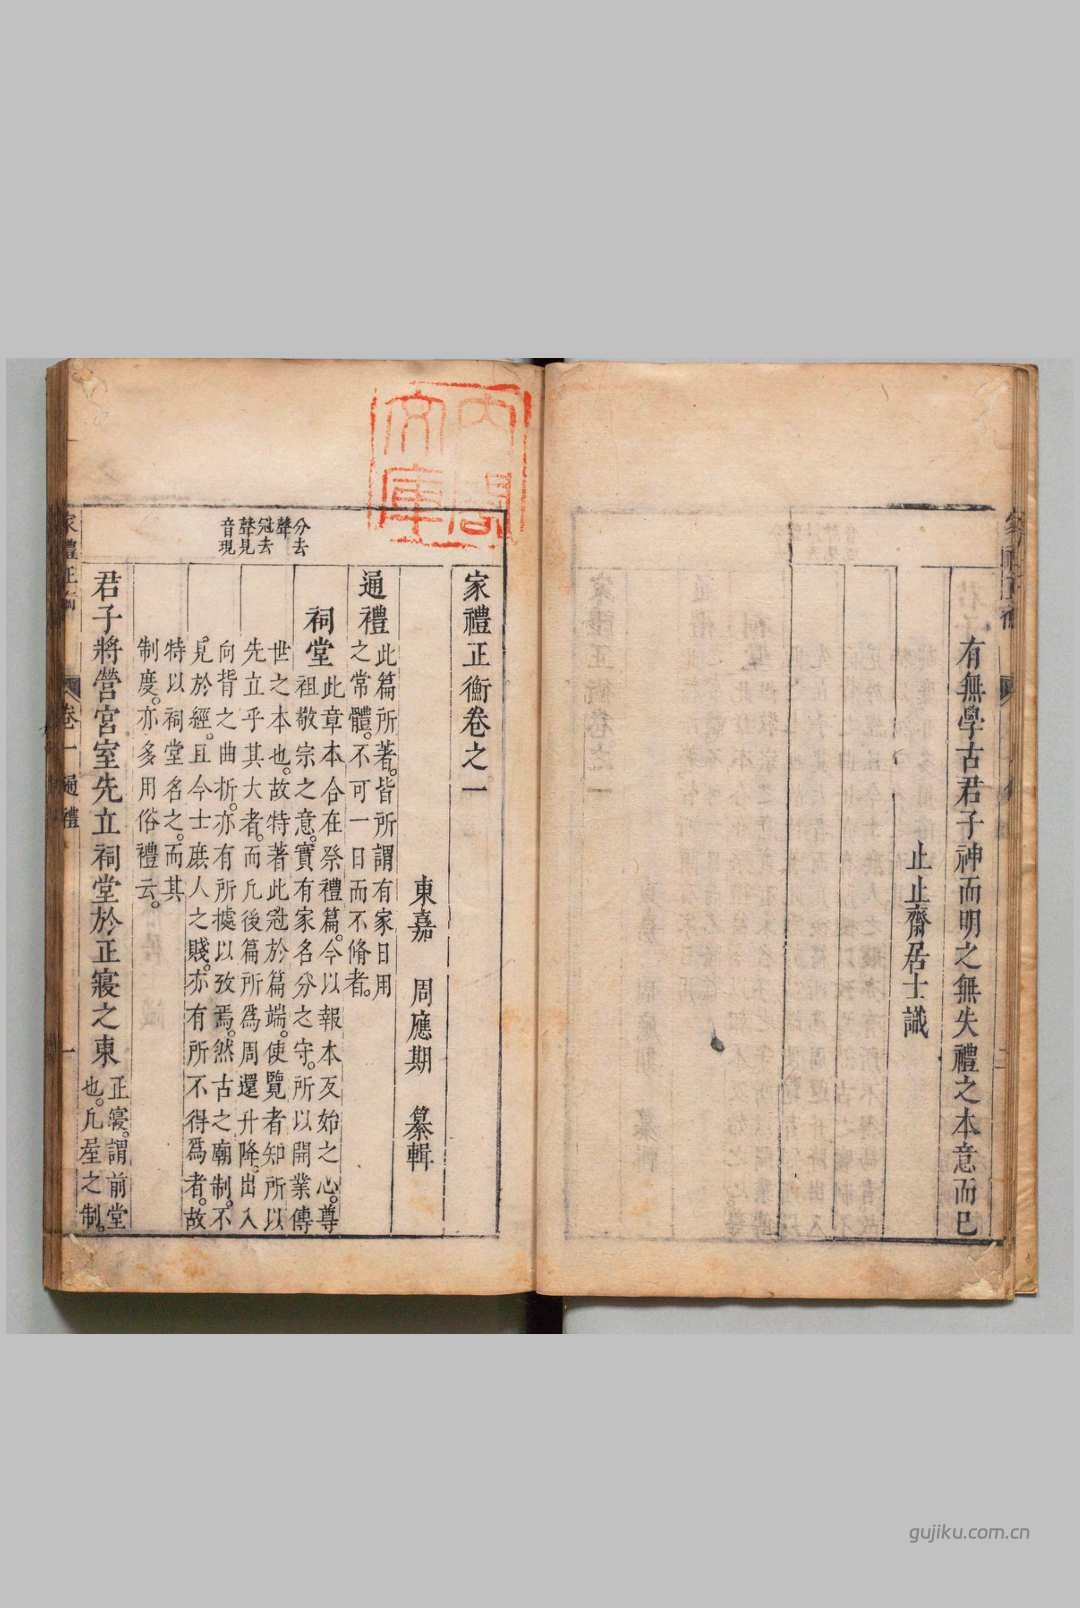 有無學古君子神而明之無失禮之本意而已
止止齋居士識
內閣
文庫
分去
聲
冠去
聲見
音現
家禮正衡卷之一
東嘉 周應期 纂輯
通禮
此篇所著。皆所謂有家日用
之常體。不可一日而不脩者。
祠堂
此章本合在祭禮篇。今以報本反始之心。尊
祖敬宗之意。實有家名分之守。所以開業傳
世之本也。故特著此冠於篇端。使覽者知所以
先立乎其大者。而凡後篇所爲周還升降。出入
向背之曲折。亦有所據以攷焉。然古之廟制。不
見於經。且今士庶人之賤。亦有所不得爲者。故
特以祠堂名之。而其
制度。亦多用俗禮云。
君子將營宮室先立祠堂於正寢之東
正寢。謂前堂
也。凡屋之制。
卷一 通禮
一
gujiku.com.cn